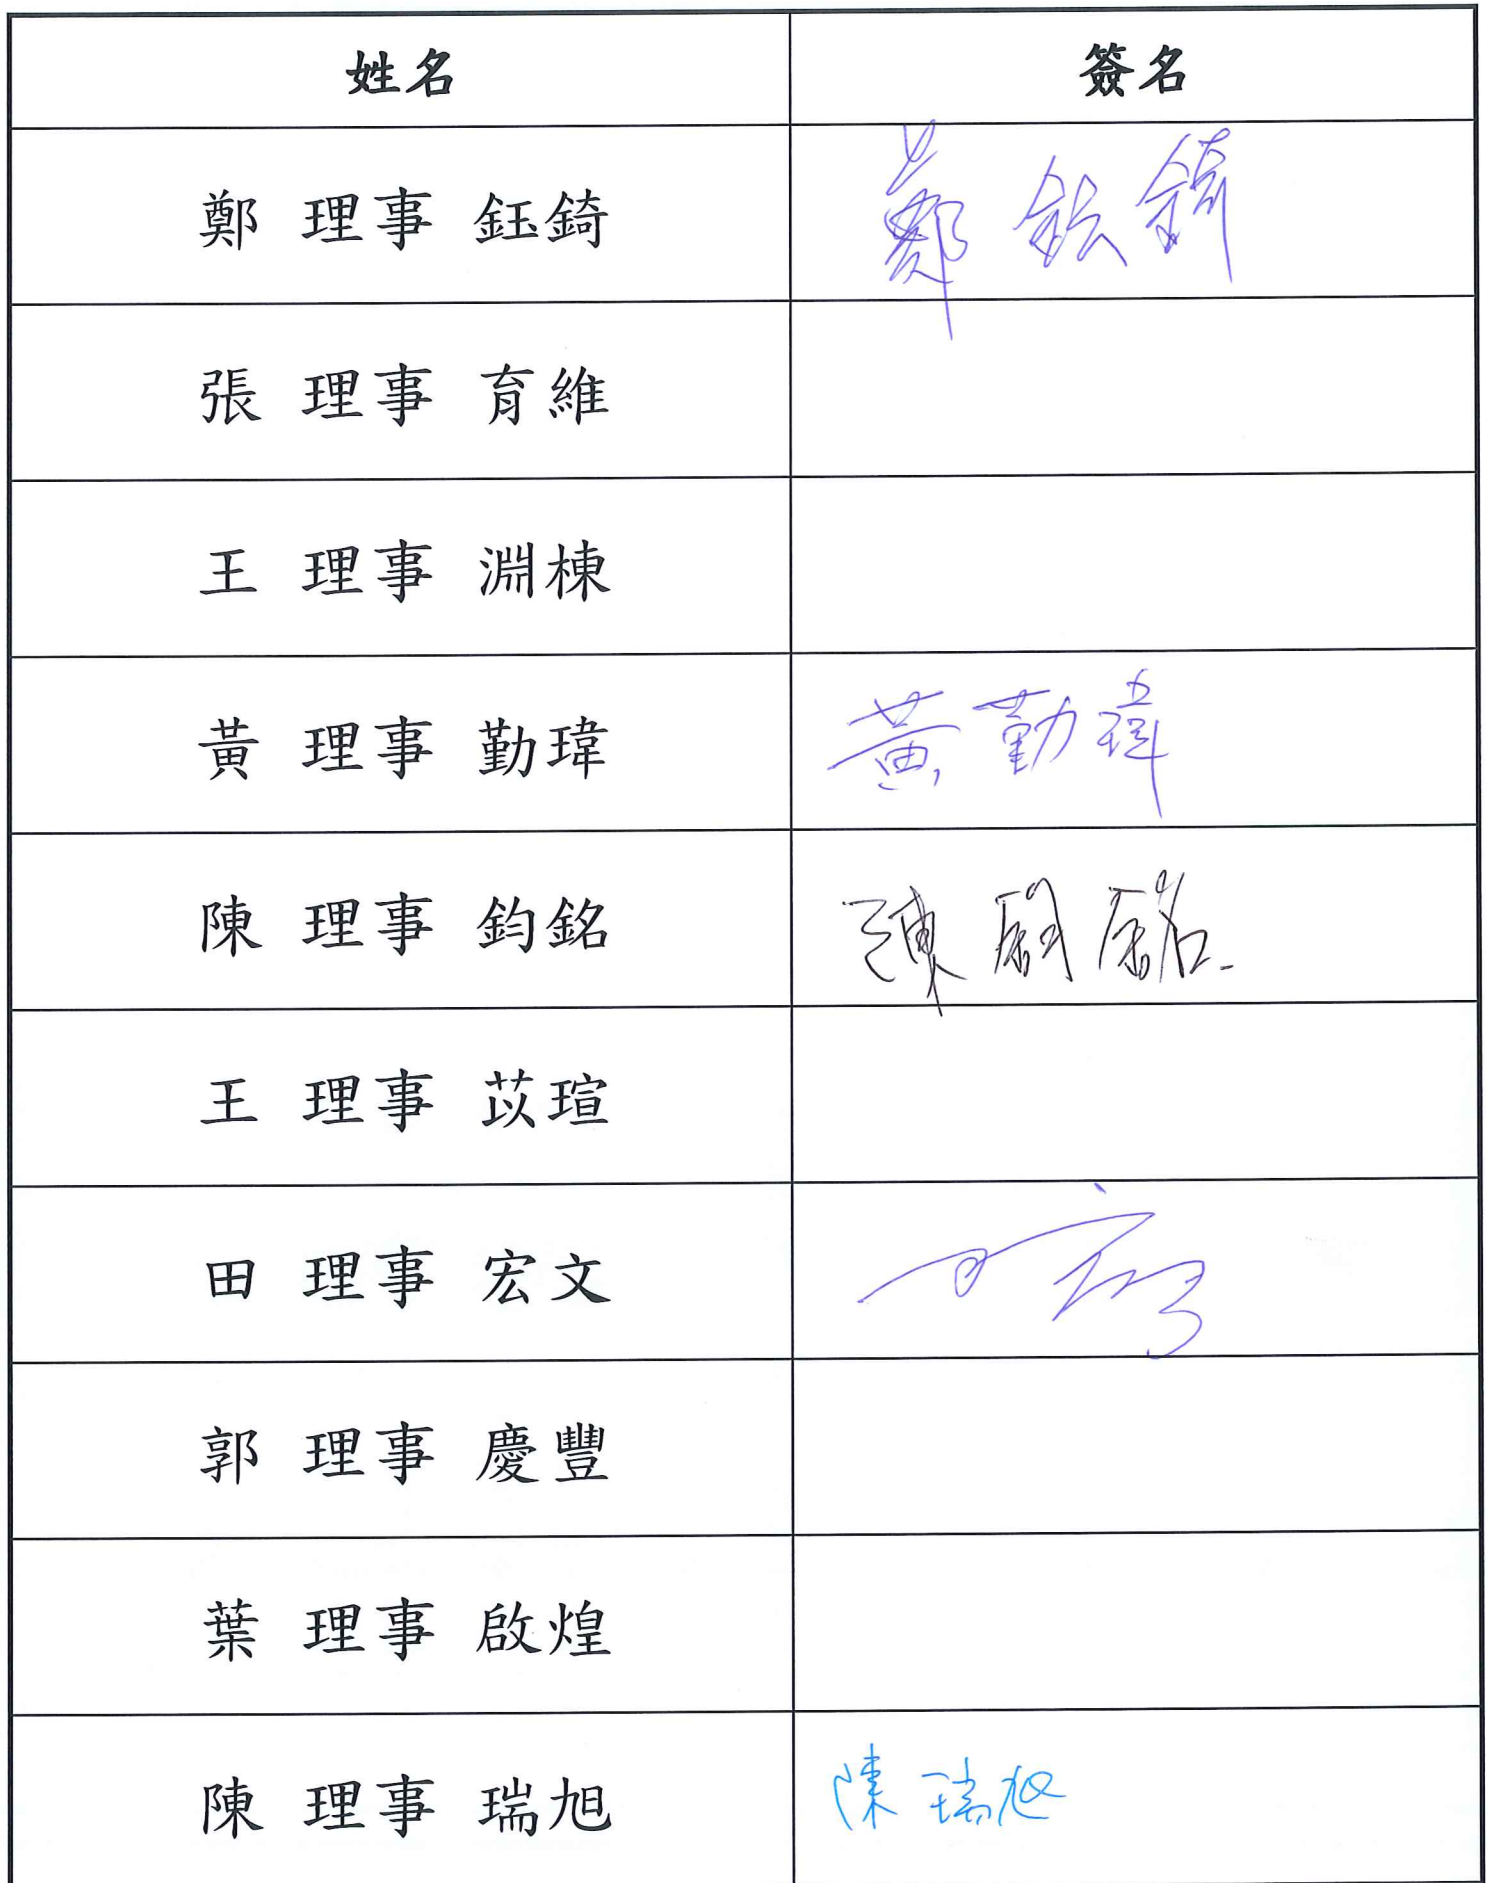 姓名 簽名
鄭 理事 鈺錡 鄭鈺錡
張 理事 育維
王 理事 淵棟
黃 理事 勤瑋 黃勤瑋
陳 理事 鈞銘 陳鈞銘
王 理事 苡瑄
田 理事 宏文
郭 理事 慶豐
葉 理事 啟煌
陳 理事 瑞旭 陳瑞旭